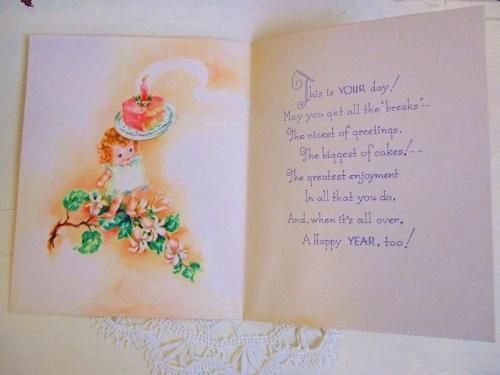 This is YOUR day!
May you get all the "breaks"--
The nicest of greetings,
The biggest of cakes!--
The greatest enjoyment
In all that you do,
And, when it's all over,
A Happy YEAR, too!